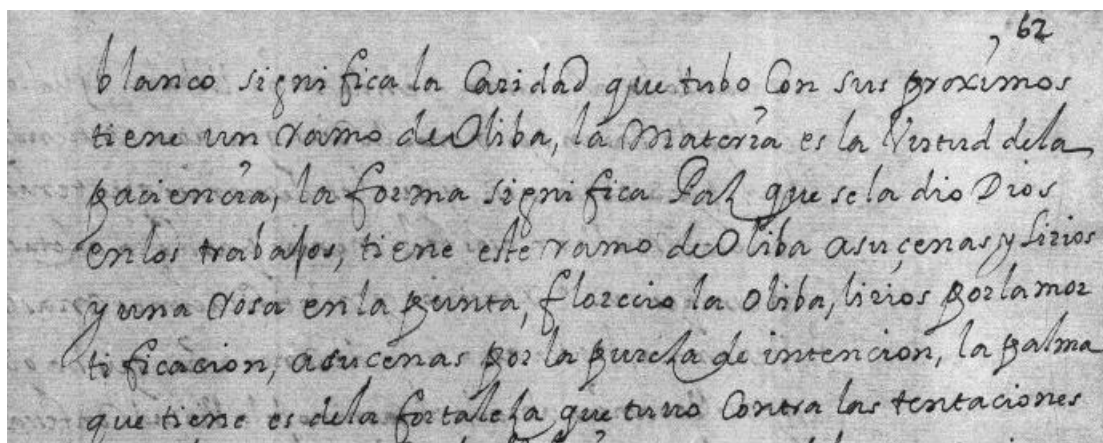 62
blanco significa la Caridad que tubo Con sus proximos
tiene un ramo de Oliba, la Materia es la Virtud dela
paciencia, la forma significa Paz que se la dio Dios
en los trabajos, tiene este ramo de Oliba asuçenas, y Lirios
y una rosa en la punta, florecio la Oliba, lirios por la mor
tificacion, asucenas por la pureza de intencion, la palma
que tiene es dela fortaleza que tuuo Contra las tentaciones